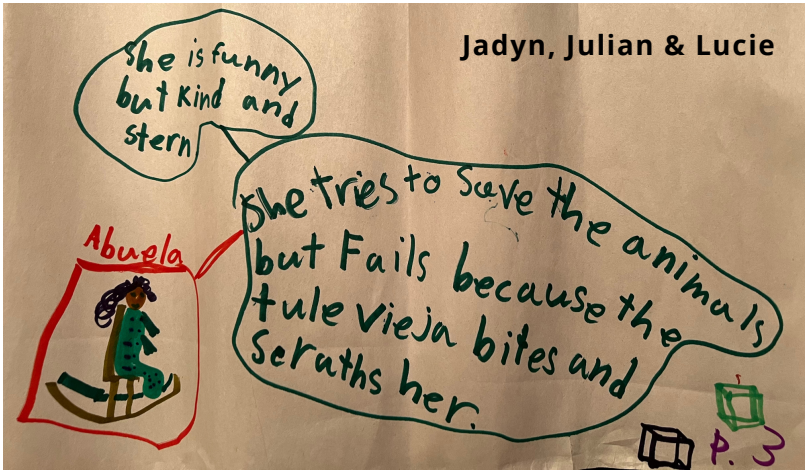 Jadyn, Julian & Lucie
She is funny
but kind and
stern
She tries to Save the animals
but Fails because the
tule vieja bites and
scraths her.
Abuela
P. 3